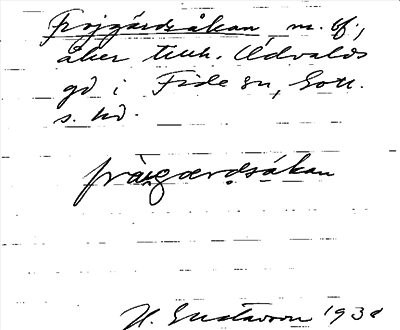 Frojgärdsåkan m. bf.,
åker tillh. Udvalds
gd i Fide sn, Gotl.
s. hd.
fràigærdsákan
H. Gustavson 1938